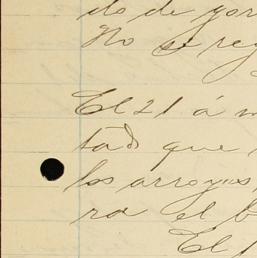 do de yor
No se reg
El 21 á m
tad que
los arroyos,
ra el b
El